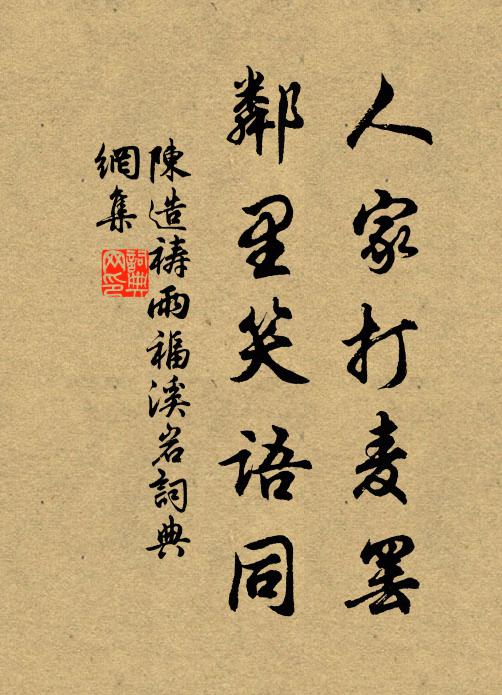 人家打麦罢
鄰里笑語同
陳造禱雨福溪岩詞典
網集
詞典
网印